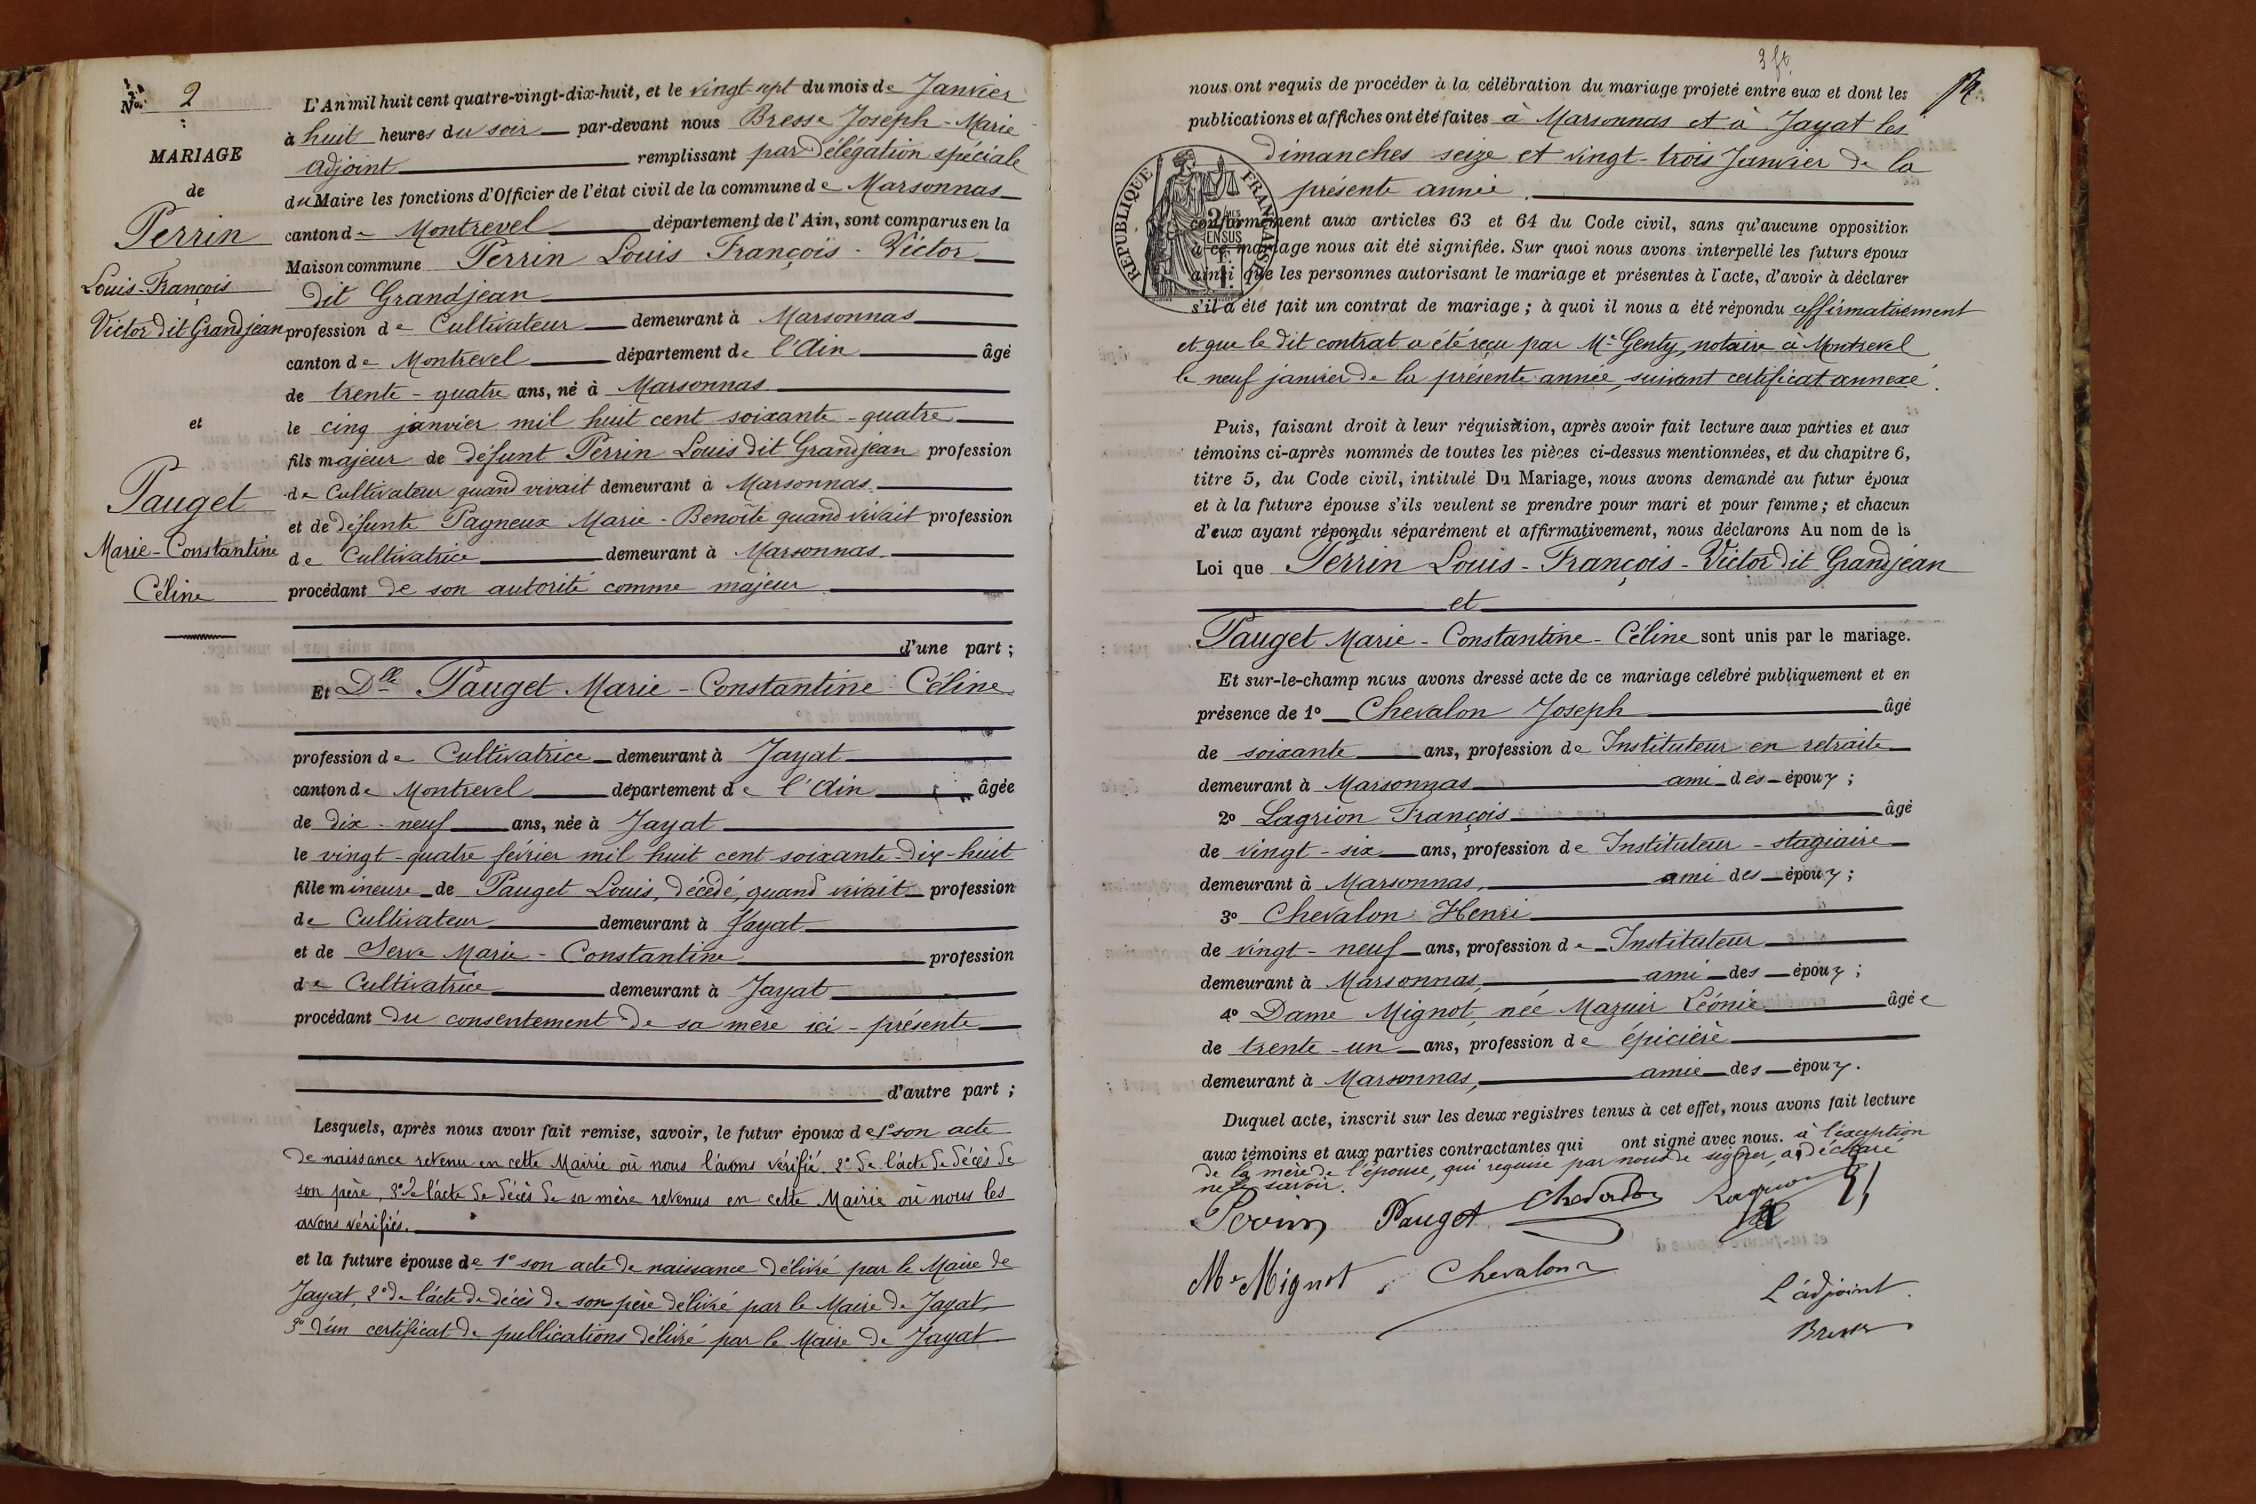 No. 2
MARIAGE
de
Perrin
Louis-François
Victor dit Grandjean
et
Pauget
Marie-Constantine
Céline
L'An mil huit cent quatre-vingt-dix-huit, et le vingt-sept du mois de Janvier
à huit heures du soir par-devant nous Bresse Joseph-Marie
Adjoint remplissant par délégation spéciale
du Maire les fonctions d'Officier de l'état civil de la commune de Marsonnas
canton de Montrevel département de l'Ain, sont comparus en la
Maison commune Perrin Louis François-Victor
dit Grandjean
profession de Cultivateur demeurant à Marsonnas
canton de Montrevel département de l'Ain âgé
de trente-quatre ans, né à Marsonnas
le cinq janvier mil huit cent soixante-quatre
fils majeur de défunt Perrin Louis dit Grandjean profession
de Cultivateur quand vivait demeurant à Marsonnas
et de défunte Pagneux Marie-Benoîte quand vivait profession
de Cultivatrice demeurant à Marsonnas
procédant de son autorité comme majeur
d'une part ;
Et Dlle Pauget Marie-Constantine Céline
profession de Cultivatrice demeurant à Jayat
canton de Montrevel département de l'Ain âgée
de dix-neuf ans, née à Jayat
le vingt-quatre février mil huit cent soixante-dix-huit
fille mineure de Pauget Louis, décédé, quand vivait profession
de Cultivateur demeurant à Jayat
et de Serve Marie-Constantine profession
de Cultivatrice demeurant à Jayat
procédant du consentement de sa mère ici-présente
d'autre part ;
Lesquels, après nous avoir fait remise, savoir, le futur époux de 1° son acte
de naissance retenu en cette Mairie où nous l'avons vérifié. 2° de l'acte de décès de
son père, 3° de l'acte de décès de sa mère retenus en cette Mairie où nous les
avons vérifiés.
et la future épouse de 1° son acte de naissance délivré par le Maire de
Jayat, 2° de l'acte de décès de son père délivré par le Maire de Jayat,
3° d'un certificat de publications délivré par le Maire de Jayat
3 ft.
nous ont requis de procéder à la célébration du mariage projeté entre eux et dont les
publications et affiches ont été faites à Marsonnas et à Jayat les
dimanches seize et vingt-trois Janvier de la
présente année.
RÉPUBLIQUE FRANÇAISE
conformément aux articles 63 et 64 du Code civil, sans qu'aucune opposition
à ce mariage nous ait été signifiée. Sur quoi nous avons interpellé les futurs époux
ainsi que les personnes autorisant le mariage et présentes à l'acte, d'avoir à déclarer
s'il a été fait un contrat de mariage ; à quoi il nous a été répondu affirmativement
et que le dit contrat a été reçu par Me Genty, notaire à Montrevel
le neuf janvier de la présente année, suivant certificat annexé.
Puis, faisant droit à leur réquisition, après avoir fait lecture aux parties et aux
témoins ci-après nommés de toutes les pièces ci-dessus mentionnées, et du chapitre 6,
titre 5, du Code civil, intitulé Du Mariage, nous avons demandé au futur époux
et à la future épouse s'ils veulent se prendre pour mari et pour femme ; et chacun
d'eux ayant répondu séparément et affirmativement, nous déclarons Au nom de la
Loi que Perrin Louis-François-Victor dit Grandjean
et
Pauget Marie-Constantine-Céline sont unis par le mariage.
Et sur-le-champ nous avons dressé acte de ce mariage célébré publiquement et en
présence de 1° Chevalon Joseph âgé
de soixante ans, profession de Instituteur en retraite
demeurant à Marsonnas ami des époux ;
2° Lagrion François âgé
de vingt-six ans, profession de Instituteur-stagiaire
demeurant à Marsonnas, ami des époux ;
3° Chevalon Henri
de vingt-neuf ans, profession de Instituteur
demeurant à Marsonnas, ami des époux ;
4° Dame Mignot, née Mazuir Léonie âgée
de trente-un ans, profession de épicière
demeurant à Marsonnas, amie des époux.
Duquel acte, inscrit sur les deux registres tenus à cet effet, nous avons fait lecture
aux témoins et aux parties contractantes qui ont signé avec nous. à l'exception
de la mère de l'épouse, qui requise par nous de signer, a déclaré
ne le savoir.
Perrin Pauget Chevalon Lagrion
Me Mignot Chevalon
L'adjoint
Bresse